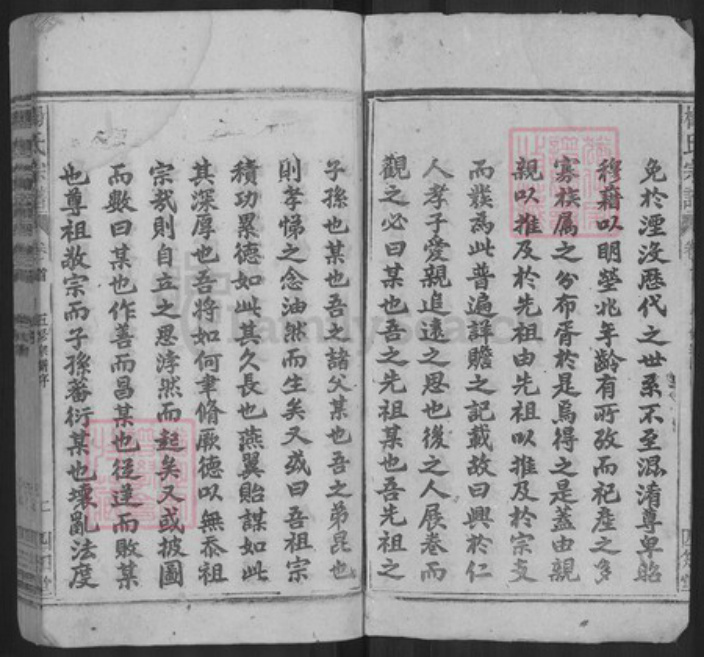 免於湮没歷代之世系不至溷淆尊卑昭
穆藉以明塋兆年齡有所攷而祀產之多
寡族属之分布胥於是焉得之是蓋由親
親以推及於先祖由先祖以推及於宗支
而𧸐為此普遍詳贍之記載故曰興於仁
人孝子愛親追遠之思也後之人展卷而
觀之必曰某也吾之先祖某也吾先祖之
子孫也某也吾之諸父某也吾之弟昆也
則孝悌之念油然而生矣又或曰吾祖宗
積功累德如此其久長也燕翼貽謀如此
其深厚也吾將如何聿脩厥德以無忝祖
宗哉則自立之思浡然而起矣又或披圖
而數曰某也作善而昌某也從逆而敗某
也尊祖敬宗而子孫蕃衍某也壞亂法度
氏宗譜
卷首
五修宗譜序
四知堂
FamilySearch